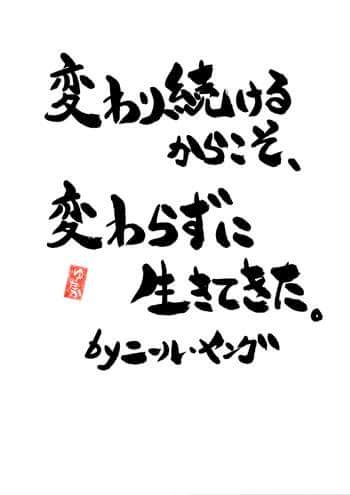 変わり続ける
からこそ、
変わらずに
生きてきた。
ゆたか
byニール・ヤング